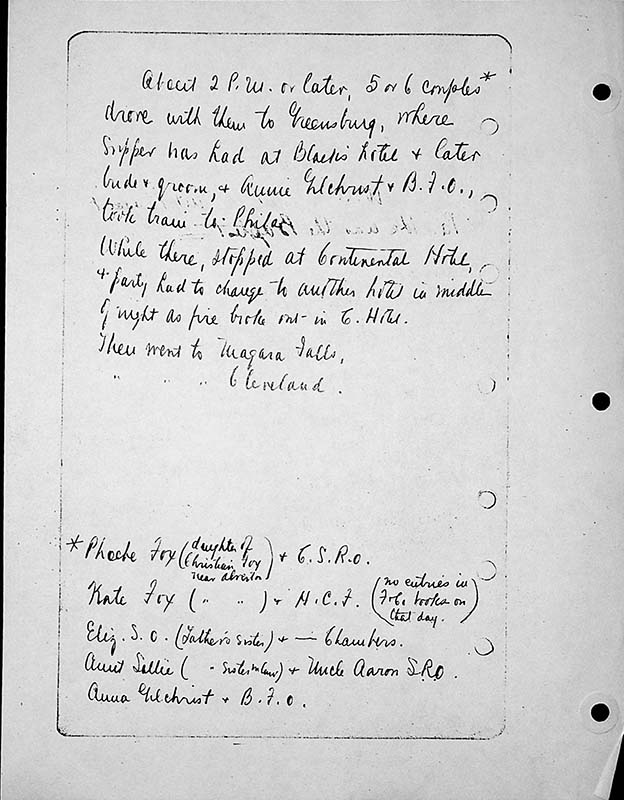 About 2 P.M. or later, 5 or 6 couples*
drove with them to Greensburg, where
Supper was had at Black's hotel & later
bride & groom, & Annie Gilchrist & B.F.O.,
took train to Phila.
While there, stopped at Continental Hotel,
& party had to change to another hotel in middle
of night as fire broke out in C. Hotel.
Then went to Niagara Falls,
" " " Cleveland.
* Phoebe Fox (daughter of Christian Fox near) & C.S.R.O.
Kate Fox ( " " ) & H.C.F. (no entries in books on that day.)
Eliz. S. O. (Father's sister) & — Chambers.
Aunt Sallie ( " sister in law) & Uncle Aaron S.R.O.
Anna Gilchrist & B.F.O.